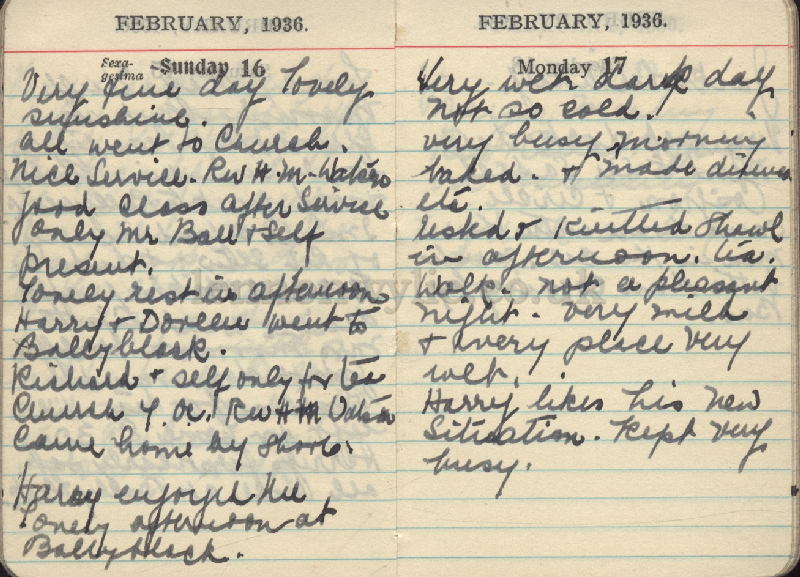 FEBRUARY, 1936.
Sexagesima Sunday 16
Very fine day lovely
sunshine.
all went to Church.
Nice Service. Rev H. M. Watson
good class after Service
only Mr Ball & self
present.
lovely rest in afternoon
Harry & Doreen went to
Ballyblack.
Richard & self only for tea
Church 7 Oc. Rev H M Watson
Came home by Shore.
Harry enjoyed the
lovely afternoon at
Ballyblack.
FEBRUARY, 1936.
Monday 17
Very wet dark day
not so cold.
very busy morning
baked. & made dinner
etc.
rested & knitted Shawl
in afternoon. tea.
Walk. not a pleasant
night. very mild
& every place very
wet.
Harry likes his new
Situation. Kept very
busy.